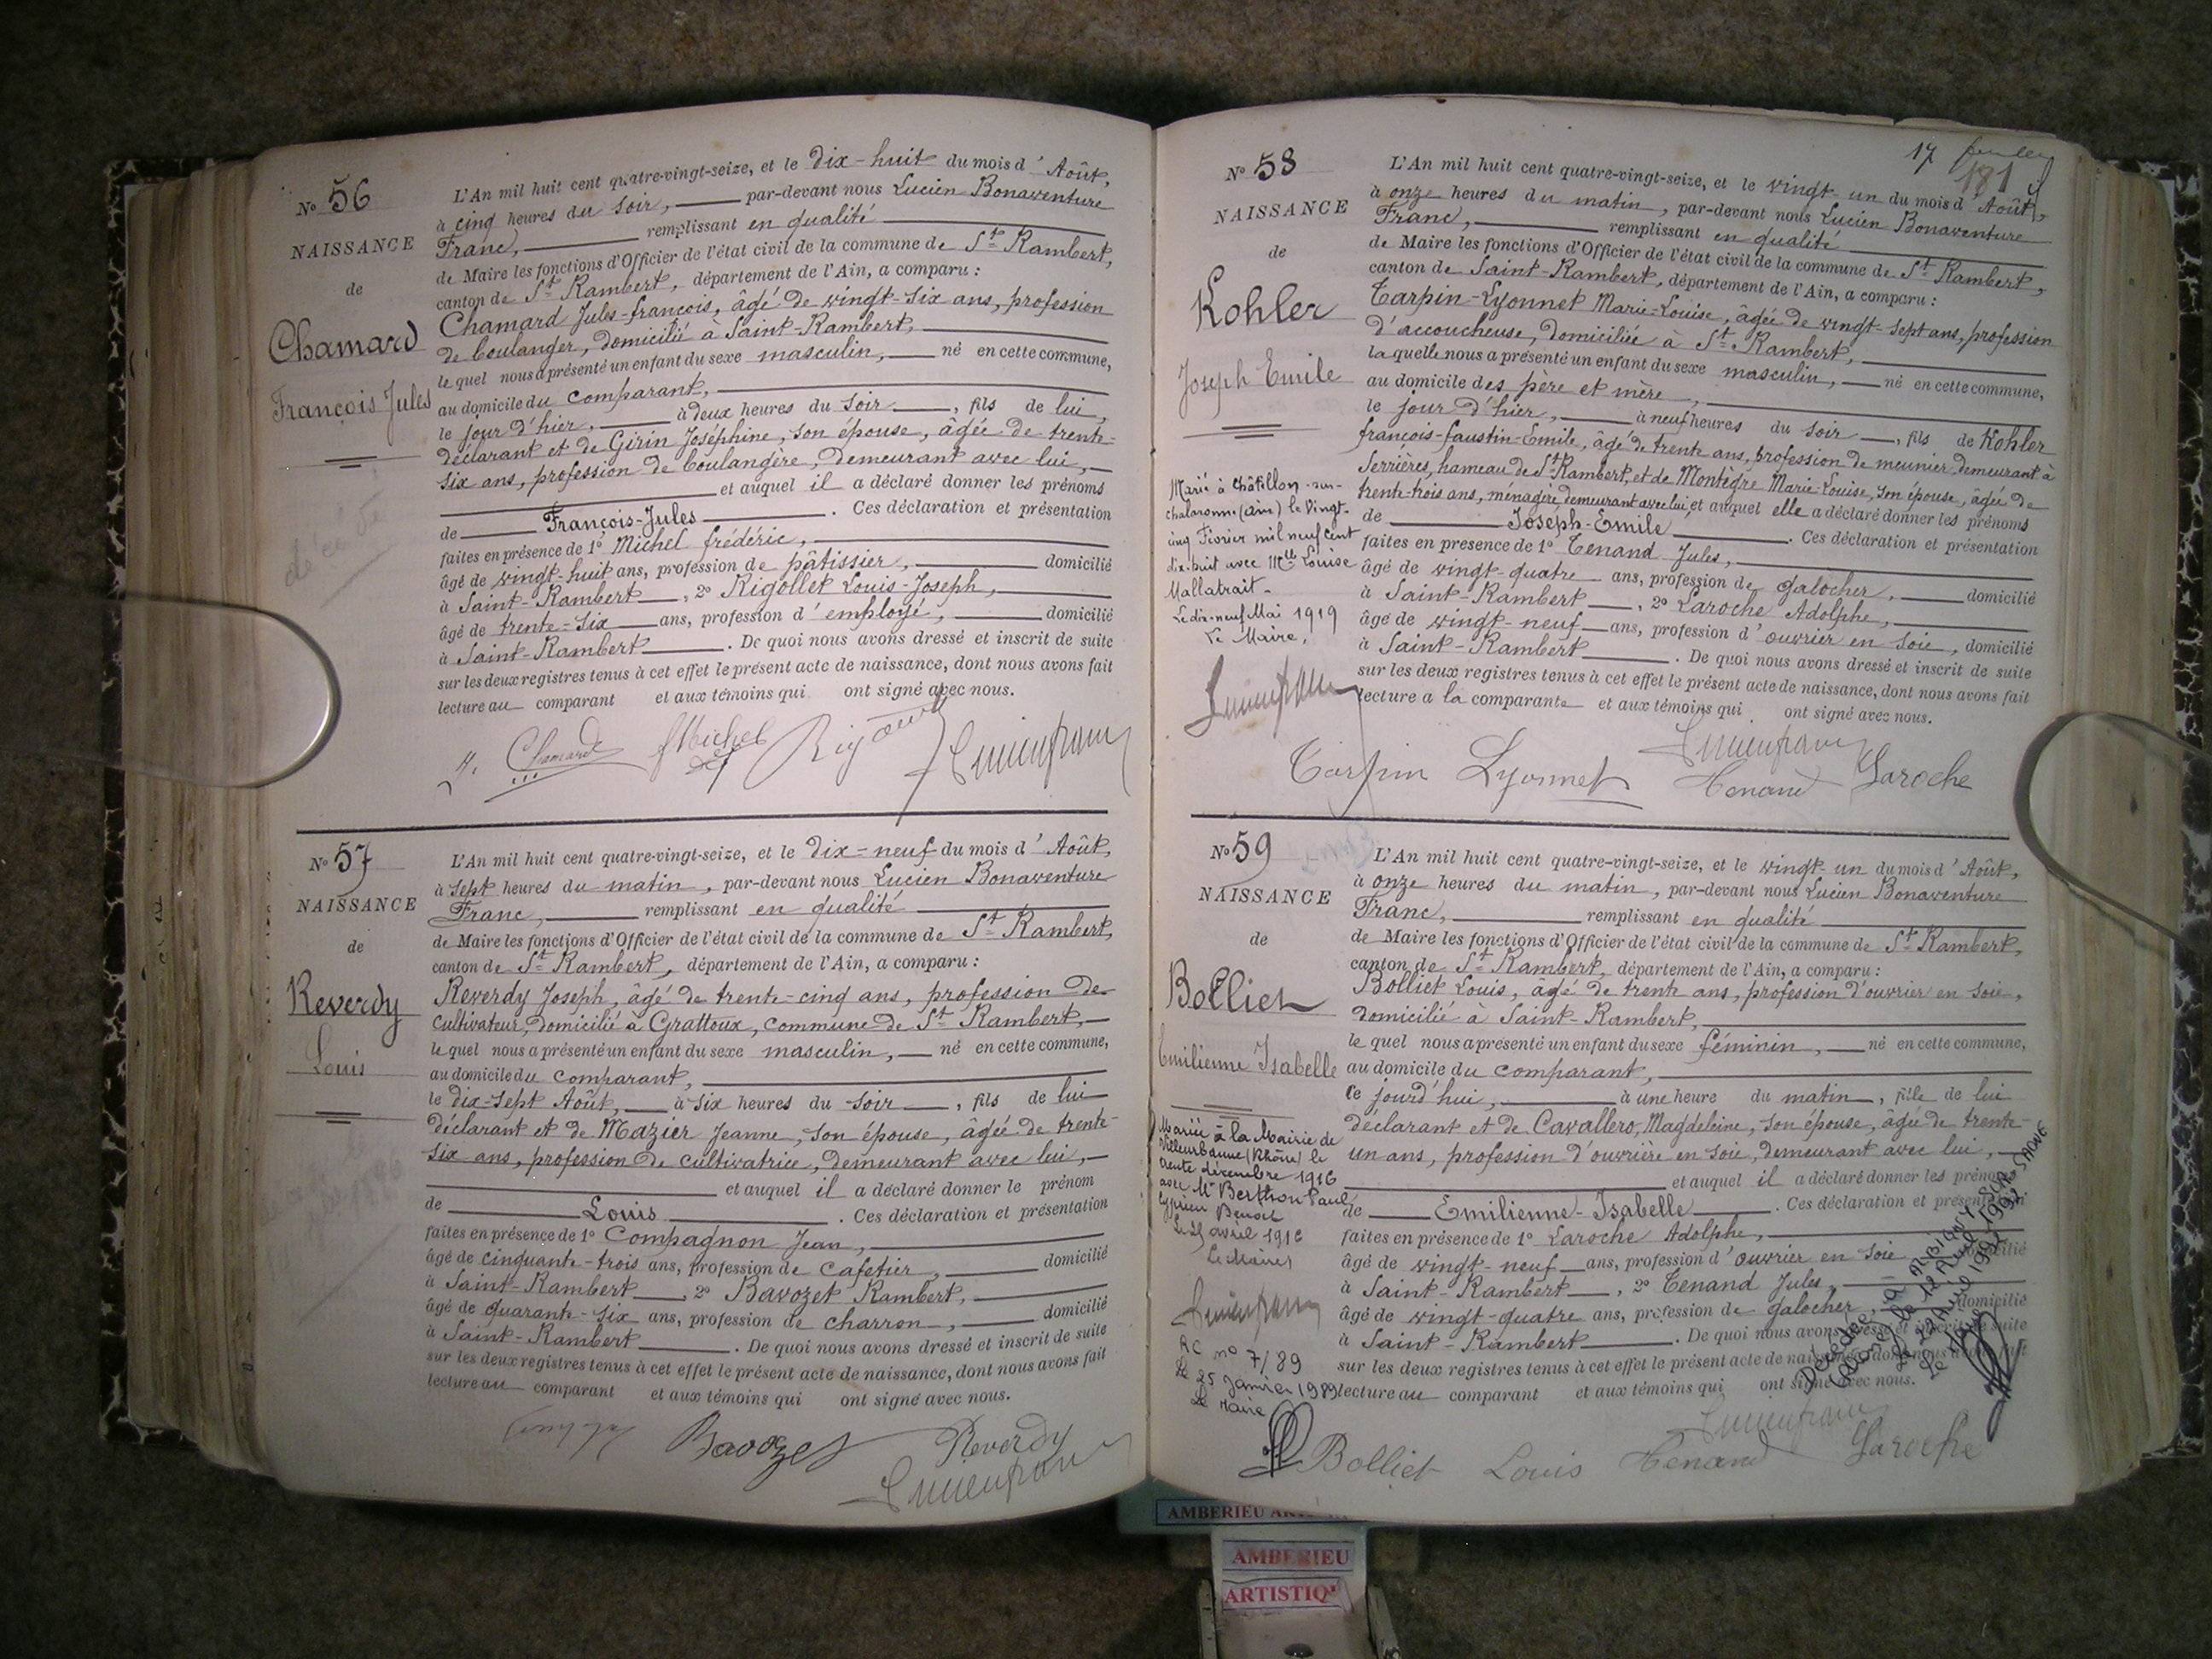 Nº 56
NAISSANCE
de
Chamard
François Jules
décédé
L'An mil huit cent quatre-vingt-seize, et le dix-huit du mois d'Août,
à cinq heures du soir, par-devant nous Lucien Bonaventure
Franc, remplissant en qualité
de Maire les fonctions d'Officier de l'état civil de la commune de St Rambert,
canton de St Rambert, département de l'Ain, a comparu :
Chamard Jules-françois, âgé de vingt-six ans, profession
de boulanger, domicilié à Saint-Rambert,
lequel nous a présenté un enfant du sexe masculin, né en cette commune,
au domicile du comparant,
le jour d'hier, à deux heures du soir, fils de lui
déclarant et de Girin Joséphine, son épouse, âgée de trente-
six ans, profession de boulangère, demeurant avec lui,
et auquel il a déclaré donner les prénoms
de François-Jules. Ces déclaration et présentation
faites en présence de 1º Michel frédéric,
âgé de vingt-huit ans, profession de pâtissier, domicilié
à Saint-Rambert, 2º Rigollet Louis-Joseph,
âgé de trente-six ans, profession d'employé, domicilié
à Saint-Rambert. De quoi nous avons dressé et inscrit de suite
sur les deux registres tenus à cet effet le présent acte de naissance, dont nous avons fait
lecture au comparant et aux témoins qui ont signé avec nous.
Chamard fMichel Lucienfranc
Nº 57
NAISSANCE
de
Reverdy
Louis
L'An mil huit cent quatre-vingt-seize, et le dix-neuf du mois d'Août,
à sept heures du matin, par-devant nous Lucien Bonaventure
Franc, remplissant en qualité
de Maire les fonctions d'Officier de l'état civil de la commune de St Rambert,
canton de St Rambert, département de l'Ain, a comparu :
Reverdy Joseph, âgé de trente-cinq ans, profession de
cultivateur, domicilié à Grattoux, commune de St Rambert,
lequel nous a présenté un enfant du sexe masculin, né en cette commune,
au domicile du comparant,
le dix-sept Août, à six heures du soir, fils de lui
déclarant et de Mazuer Jeanne, son épouse, âgée de trente-
six ans, profession de cultivatrice, demeurant avec lui,
et auquel il a déclaré donner le prénom
de Louis. Ces déclaration et présentation
faites en présence de 1º Compagnon Jean,
âgé de cinquante-trois ans, profession de cafetier, domicilié
à Saint-Rambert, 2º Bavozet Rambert,
âgé de quarante-six ans, profession de charron, domicilié
à Saint-Rambert. De quoi nous avons dressé et inscrit de suite
sur les deux registres tenus à cet effet le présent acte de naissance, dont nous avons fait
lecture au comparant et aux témoins qui ont signé avec nous.
Bavozet Reverdy
Lucienfranc
17
181
Nº 58
NAISSANCE
de
Kohler
Joseph Emile
Marié à Châtillon-sur-
chalaronne (Ain) le Vingt-
cinq Février mil neuf cent
dix-huit avec Mlle Louise
Mallatrait.
Le dix-neuf Mai 1919
Le Maire,
Lucienfranc
L'An mil huit cent quatre-vingt-seize, et le vingt-un du mois d'Août,
à onze heures du matin, par-devant nous Lucien Bonaventure
Franc, remplissant en qualité
de Maire les fonctions d'Officier de l'état civil de la commune de St Rambert,
canton de Saint-Rambert, département de l'Ain, a comparu :
Tarpin-Lyonnet Marie-Louise, âgée de vingt-sept ans, profession
d'accoucheuse, domiciliée à St Rambert,
laquelle nous a présenté un enfant du sexe masculin, né en cette commune,
au domicile des père et mère,
le jour d'hier, à neuf heures du soir, fils de Kohler
françois-faustin-Emile, âgé de trente ans, profession de meunier demeurant à
Serrières, hameau de St Rambert, et de Montègre Marie-Louise, son épouse, âgée de
trente-trois ans, ménagère, demeurant avec lui, et auquel elle a déclaré donner les prénoms
de Joseph-Emile. Ces déclaration et présentation
faites en présence de 1º Tenand Jules,
âgé de vingt-quatre ans, profession de galocher, domicilié
à Saint-Rambert, 2º Laroche Adolphe,
âgé de vingt-neuf ans, profession d'ouvrier en soie, domicilié
à Saint-Rambert. De quoi nous avons dressé et inscrit de suite
sur les deux registres tenus à cet effet le présent acte de naissance, dont nous avons fait
lecture a la comparante et aux témoins qui ont signé avec nous.
Lucienfranc
Tarpin Lyonnet Tenand Laroche
Nº 59
NAISSANCE
de
Bolliet
Emilienne Isabelle
Mariée à la Mairie de
Villeurbanne (Rhône) le
trente décembre 1916
avec Mr Berthson Paul
Cyprien Benoit
Le Maire
Lucienfranc
RC nº 7/89
Le 25 Janvier 1989
Le Maire
L'An mil huit cent quatre-vingt-seize, et le vingt-un du mois d'Août,
à onze heures du matin, par-devant nous Lucien Bonaventure
Franc, remplissant en qualité
de Maire les fonctions d'Officier de l'état civil de la commune de St Rambert,
canton de St Rambert, département de l'Ain, a comparu :
Bolliet Louis, âgé de trente ans, profession d'ouvrier en soie,
domicilié à Saint-Rambert,
lequel nous a présenté un enfant du sexe féminin, né en cette commune,
au domicile du comparant,
ce jourd'hui, à une heure du matin, fille de lui
déclarant et de Cavallero, Magdeleine, son épouse, âgée de trente-
un ans, profession d'ouvrière en soie, demeurant avec lui,
et auquel il a déclaré donner les prénoms
de Emilienne-Isabelle. Ces déclaration et présentation
faites en présence de 1º Laroche Adolphe,
âgé de vingt-neuf ans, profession d'ouvrier en soie domicilié
à Saint-Rambert, 2º Tenand Jules,
âgé de vingt-quatre ans, profession de galocher domicilié
à Saint-Rambert. De quoi nous avons dressé et inscrit de suite
sur les deux registres tenus à cet effet le présent acte de naissance, dont nous avons fait
lecture au comparant et aux témoins qui ont signé avec nous.
Décédée à
Le Maire
Lucienfranc
Bolliet Louis Tenand Laroche
AMBERIEU
AMBERIEU
ARTISTIQ